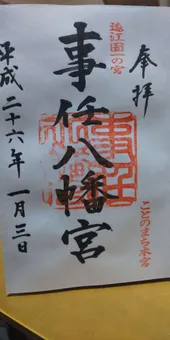 奉拝
遠江國一の宮
事任八幡宮
ことのまち本宮
平成二十六年一月三日